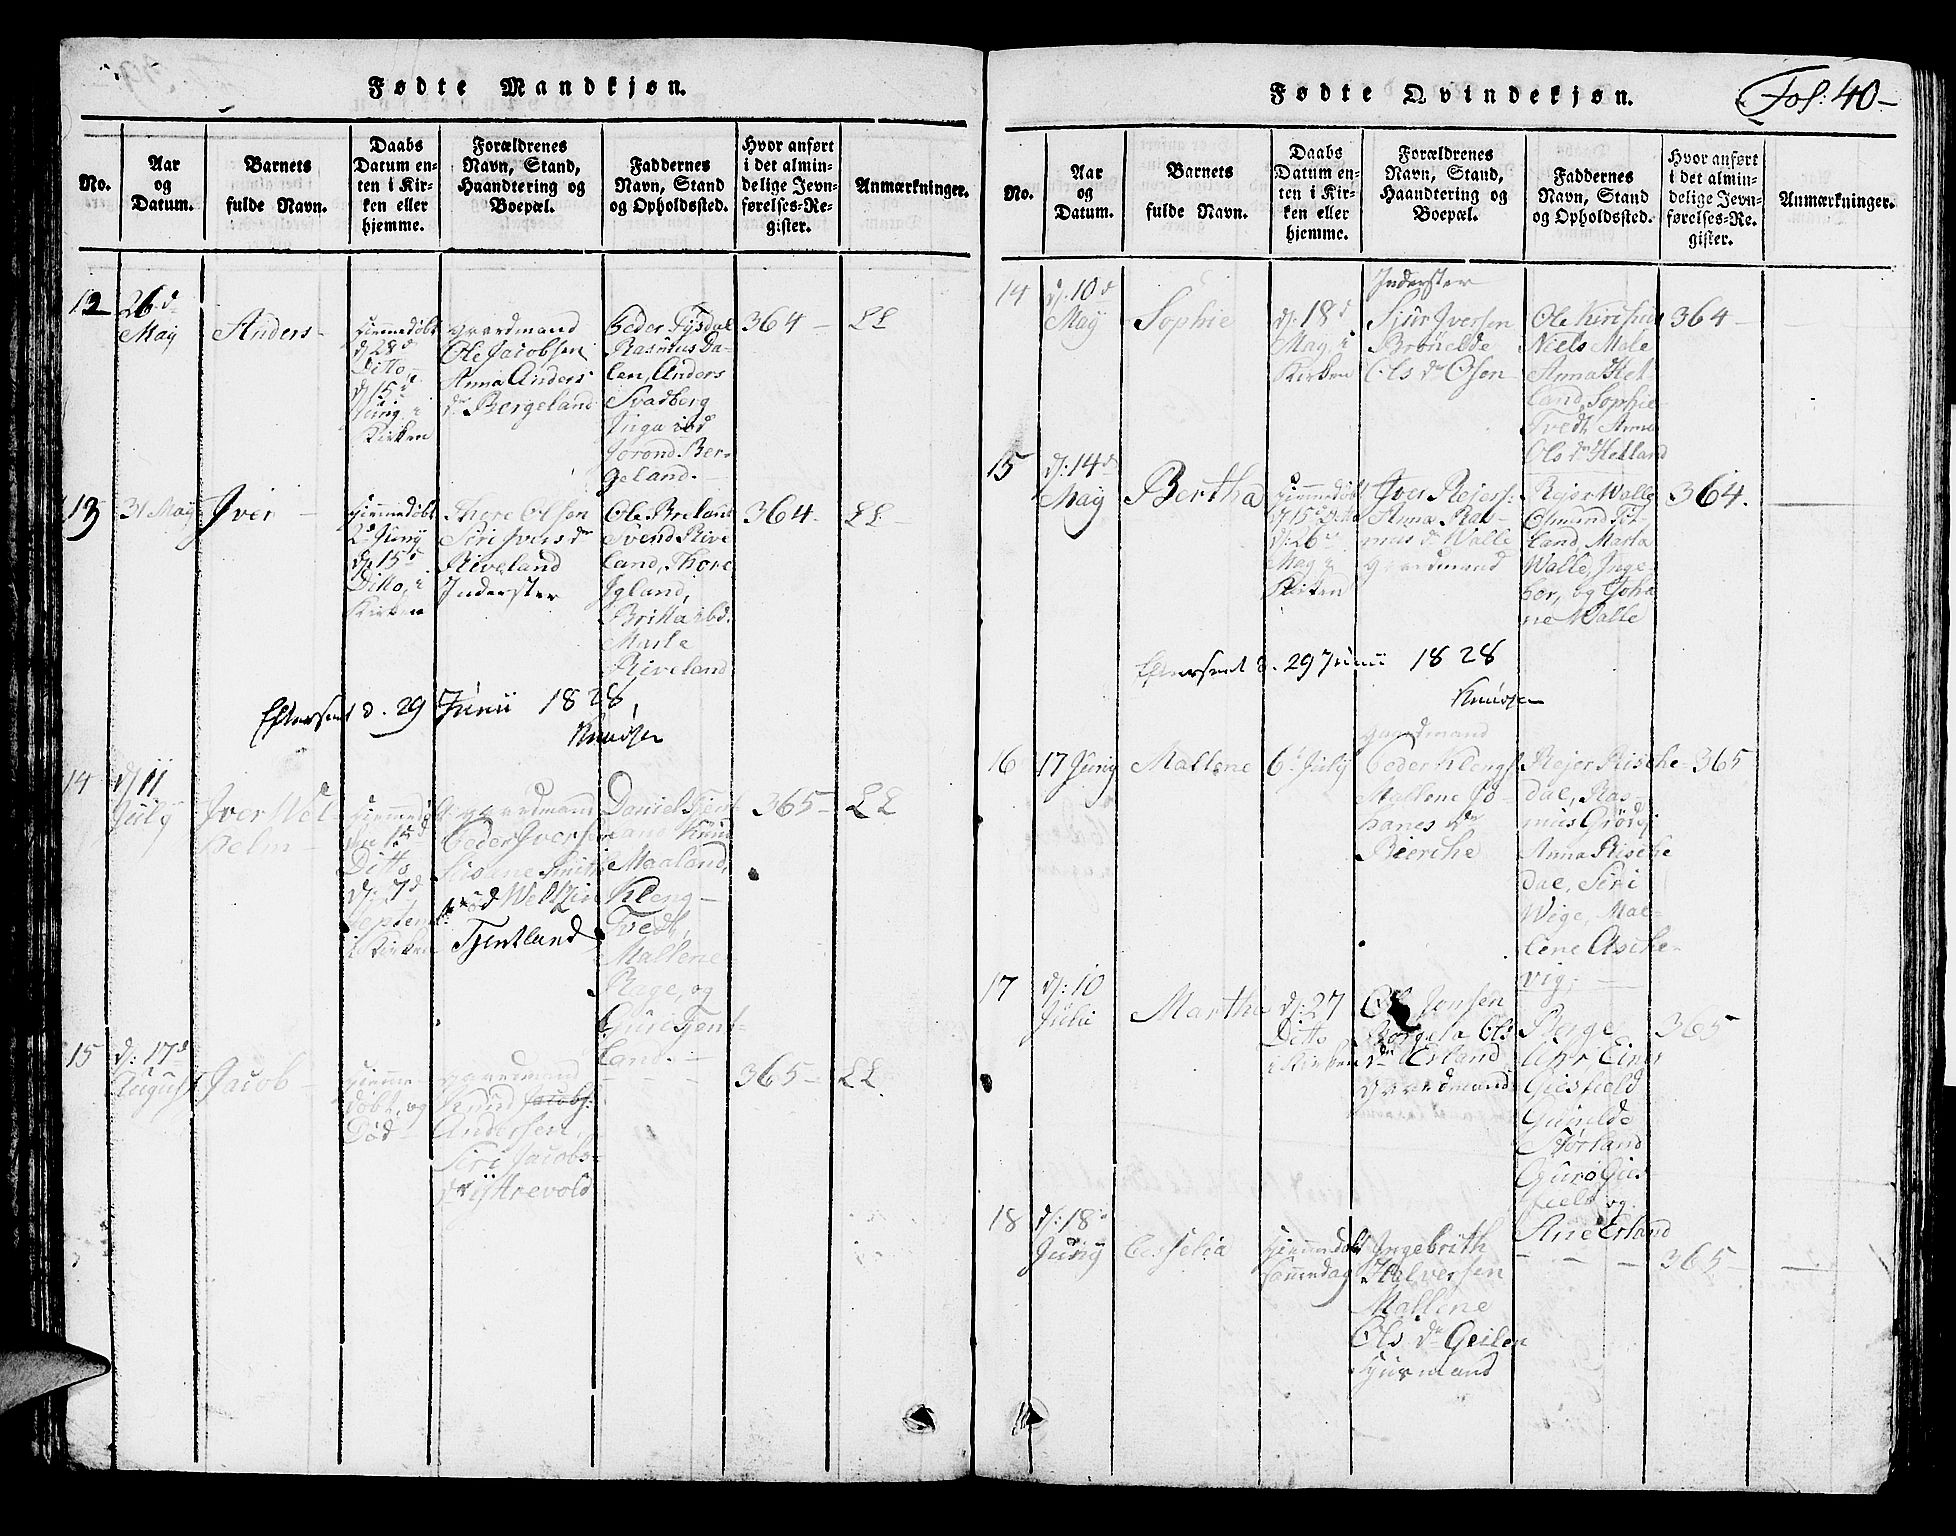 Fødte Mandkjøn.
No.
Aar
og
Datum.
Barnets
fulde Navn.
Daabs
Datum en-
ten i Kir-
ken eller
hjemme.
Forældrenes
Navn, Stand,
Haandtering og
Boepæl.
Faddernes
Navn, Stand
og Opholdssted.
Hvor anført
i det almin-
delige Jevn-
førelses-Re-
gister.
Anmærkninger.
12
26d
May
Anders
hiemmedøbt
d 28d
Ditto,
d 15d
Juny i
Kirken
gaardmand
Ole Jacobsen
Anna Anders
dr Bergeland
Peder Tysdal
Rasmus Da-
len, Anders
Svadberg
Inga ibd
Jorond Ber-
geland.
364
LL
13
31 May
Iver
hiemmedøbt
2d Juny
d 15d
Ditto, i
Kirken
Thore Olsen
Siri Ivers dr
Riveland
Inderster
Ole Breland
Svend Rive
land, Thore
Igland,
Britta ibd.
Marte
Riveland
364
LL
Efterseet d. 29 Junii 1828,
Knudsen
14
d 11
July
Iver Wel
helm
Ditto
d: 7d
Septem
i Kirken
gaardmand
Peder Iversen
fød Weltzin
Tjentland
Daniel Tjent
land Knud
Maaland,
Kleng
Tvedt,
Mallene
Rage, og
Guri Tjent-
land.
365
LL
15
d: 17d
August
Jacob
hiemme-
døbt, og
Død
gaardmand
Knud Jacobs.
Andersen,
Siri Jacobs-
dr Østrevold
365
LL
Fødte Qvindekjøn.
Fol: 40
No.
Aar
og
Datum.
Barnets
fulde Navn.
Daabs
Datum en-
ten i Kir-
ken eller
hjemme.
Forældrenes
Navn, Stand,
Haandtering og
Boepæl.
Faddernes
Navn, Stand
og Opholdssted.
Hvor anført
i det almin-
delige Jevn-
førelses-Re-
gister.
Anmærkninger.
14
d: 10d
May
Sophie
d: 18d
May i
Kirken
Inderster
Sjur Iversen
Brønelde
Ols dr Osen
Ole Kirishus
Niels Mæle
Anna Het
land, Sophie
Tvedt, Anna
Ols dr Hetland
364
15
d: 14d
May
Bertha
hiemmedøbt
d 15d Ditto
d: 26d
May i
Kirken
Iver Rejers:
Anna Ras-
mus dr Walle
gaardmand
Rejer Walle
Osmund Tit-
land, Marta
Walle, Inge-
bor, og Joha
ne Walle
364.
Efterseet d. 29 Junii 1828
Knudsen
16
17 Juny
Mallene
6d July
gaardmand
Peder Klengs
Mallene Jo-
hanes dr
Bierche
Rejer Rische-
dal, Ras-
mus Grødj
Anna Rische
dal, Siri
Wige, Mal-
lene Asche-
vig.
365
17
d: 10
Julii
Martha
d: 27
Ditto
i Kirken
Ole Jonsen
Borgela Ols
dr Erland
gaardmand
Børge
Giesfield
Gunelde
Størland
Guro Gies-
field og
Ane Erland
365
18
d: 18d
Juny
Cesselia
hiemmedøbt
samme dag
Ingebrith
Halversen
Mallene
Ols dr Geilen
huusmand
365